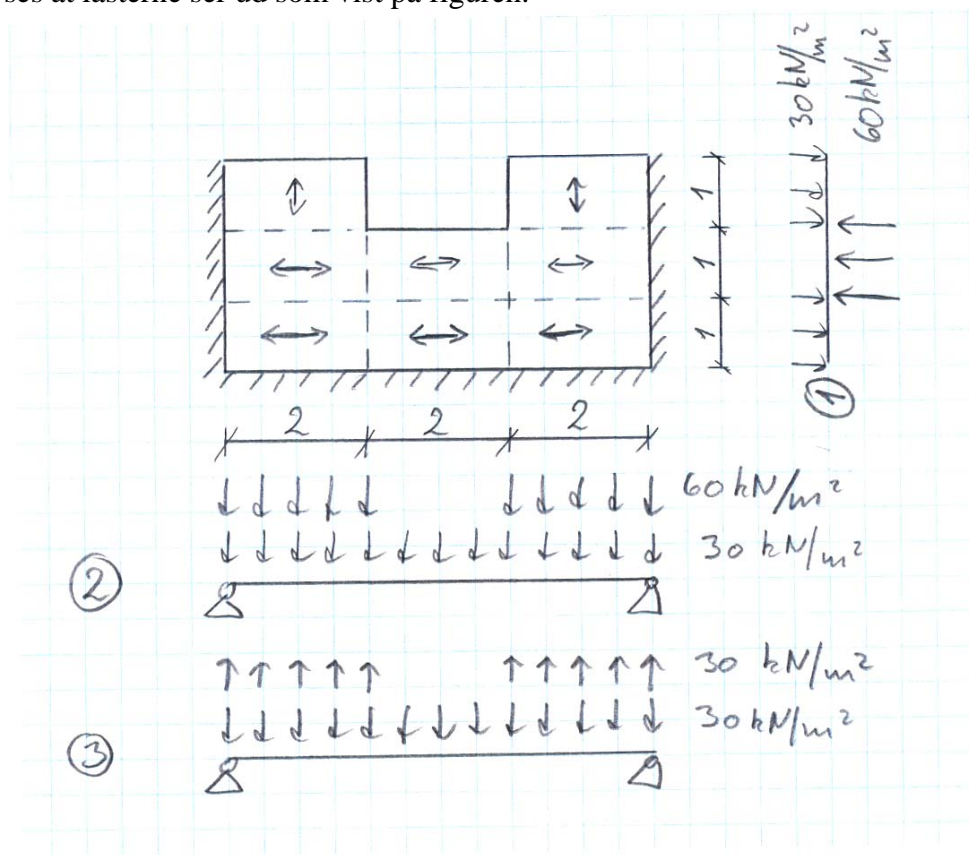 ses at lasterne ser ud som vist på figuren.
30 kN/m²
60 kN/m²
1
1
1
①
2 2 2
60 kN/m²
30 kN/m²
②
30 kN/m²
30 kN/m²
③